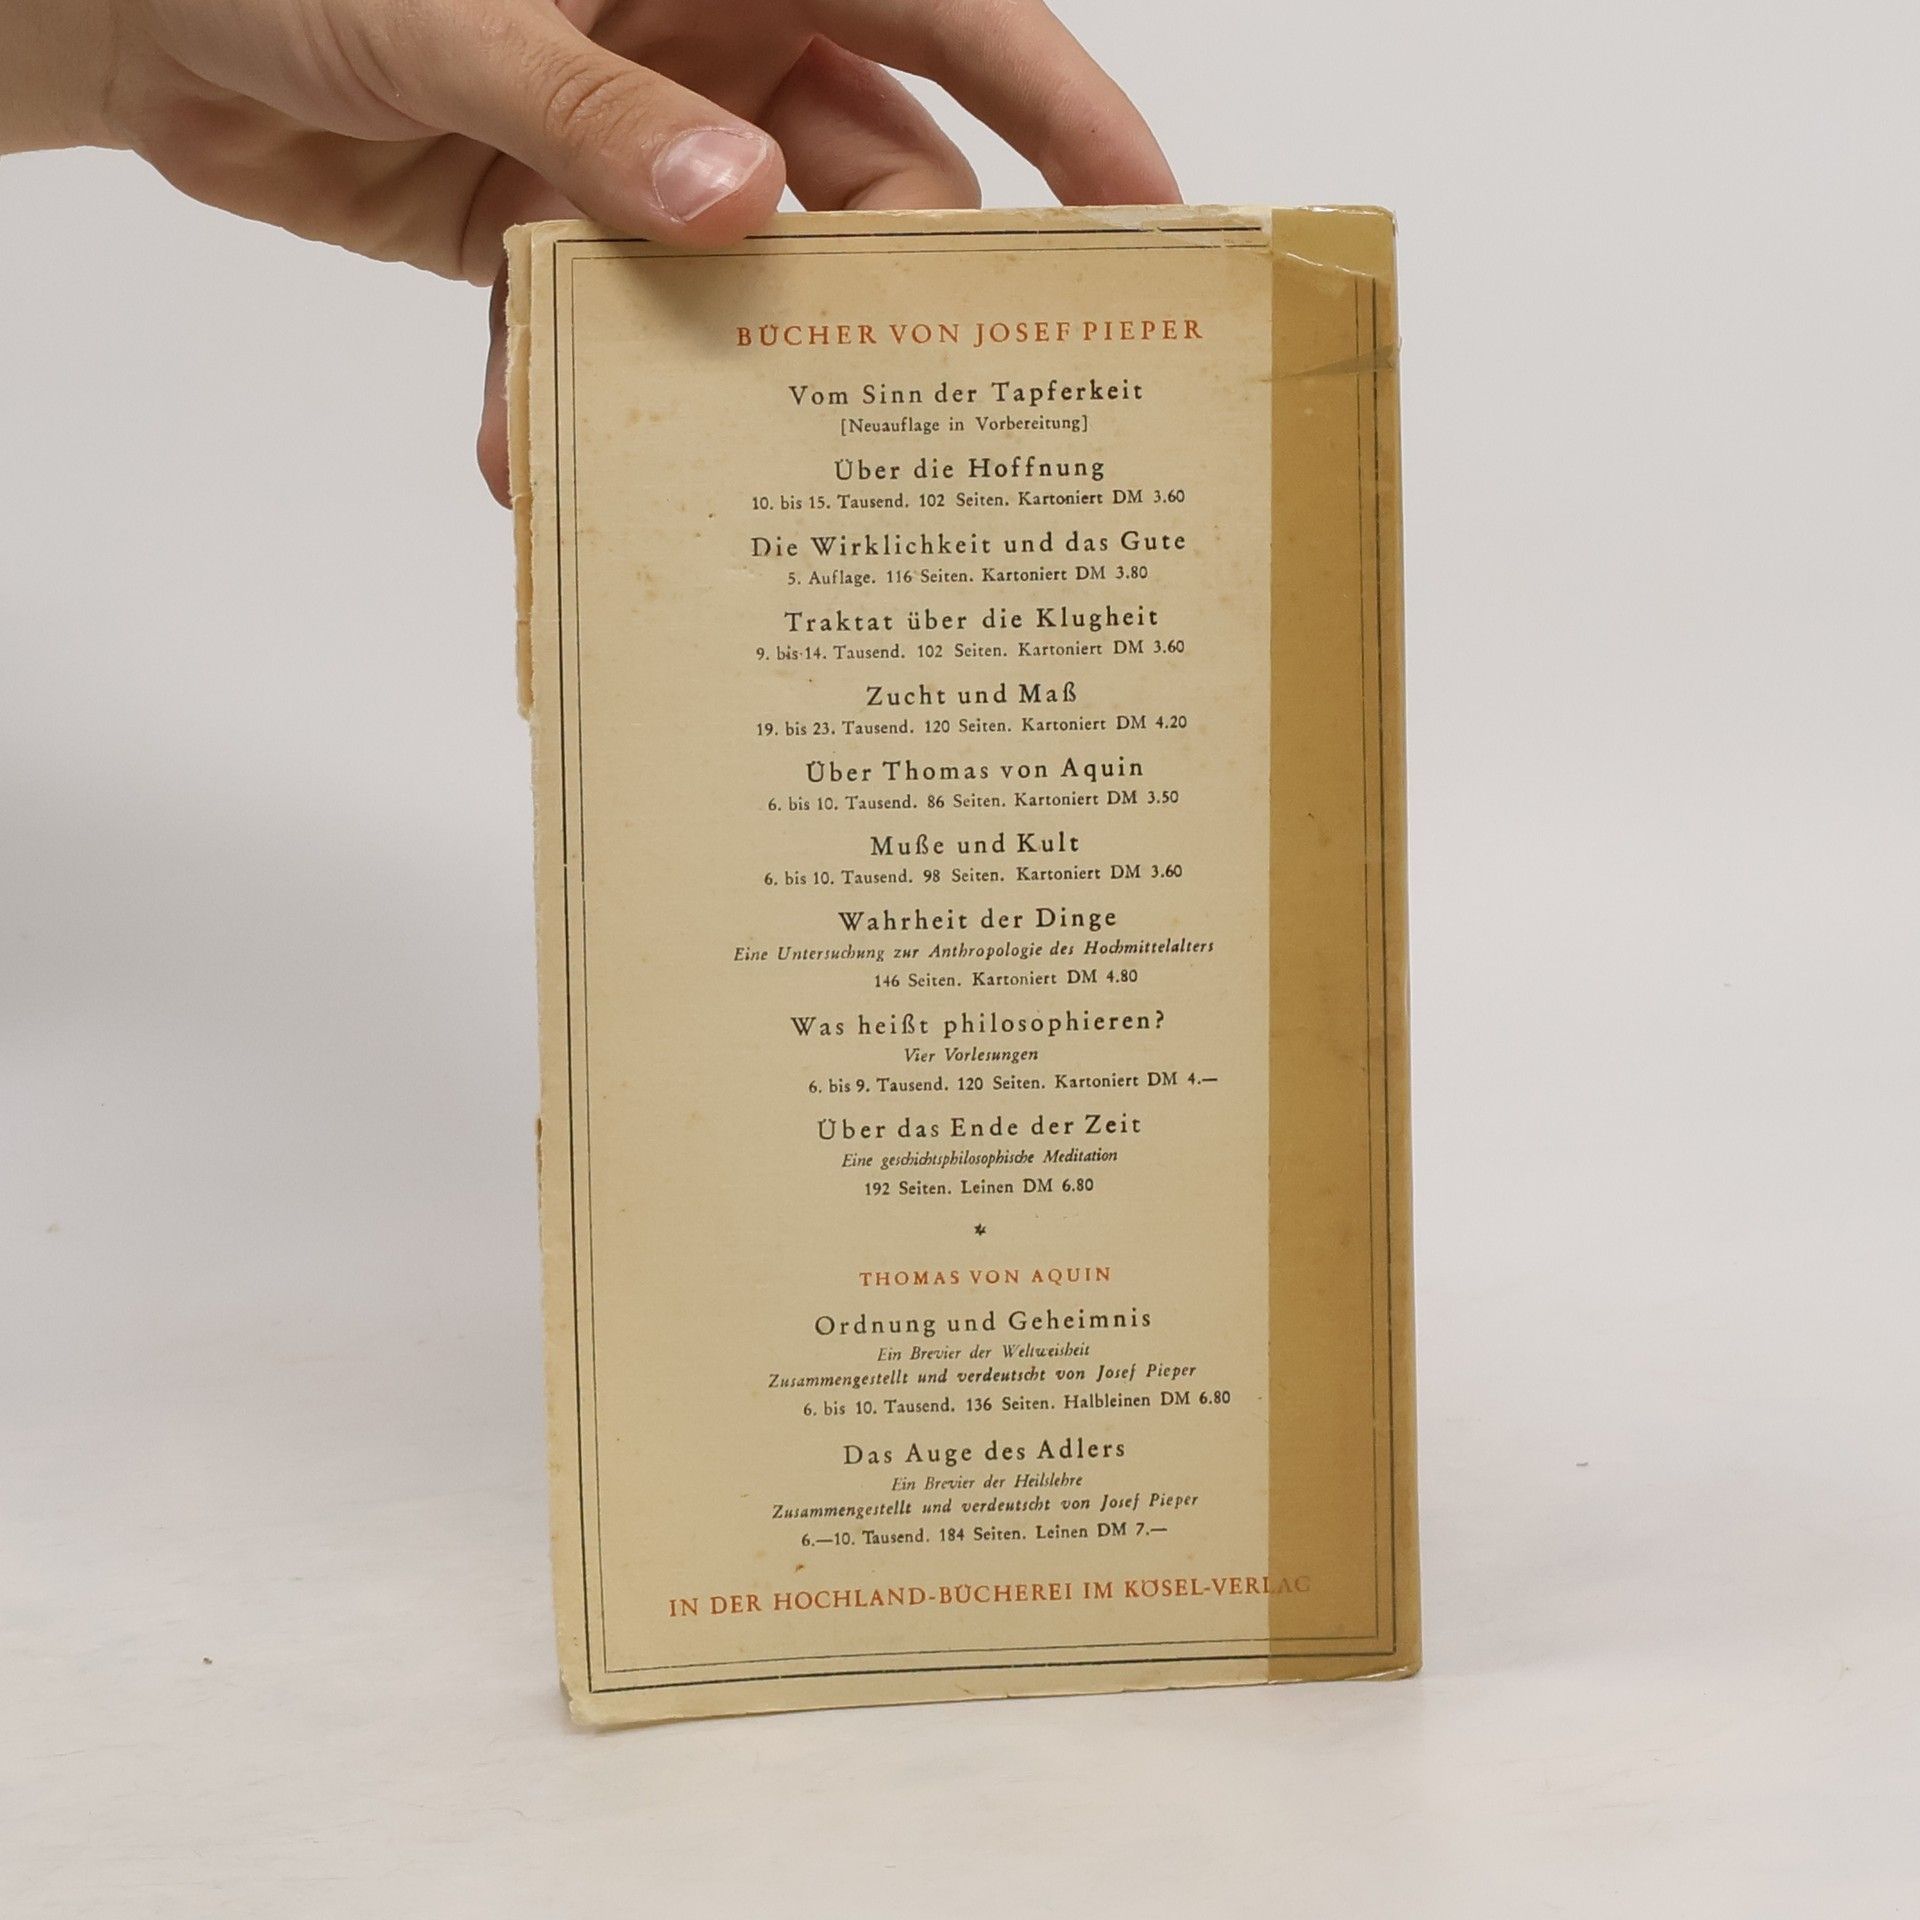 BÜCHER VON JOSEF PIEPER
Vom Sinn der Tapferkeit
[Neuauflage in Vorbereitung]
Über die Hoffnung
10. bis 15. Tausend. 102 Seiten. Kartoniert DM 3.60
Die Wirklichkeit und das Gute
5. Auflage. 116 Seiten. Kartoniert DM 3.80
Traktat über die Klugheit
9. bis 14. Tausend. 102 Seiten. Kartoniert DM 3.60
Zucht und Maß
19. bis 23. Tausend. 120 Seiten. Kartoniert DM 4.20
Über Thomas von Aquin
6. bis 10. Tausend. 86 Seiten. Kartoniert DM 3.50
Muße und Kult
6. bis 10. Tausend. 98 Seiten. Kartoniert DM 3.60
Wahrheit der Dinge
Eine Untersuchung zur Anthropologie des Hochmittelalters
146 Seiten. Kartoniert DM 4.80
Was heißt philosophieren?
Vier Vorlesungen
6. bis 9. Tausend. 120 Seiten. Kartoniert DM 4.—
Über das Ende der Zeit
Eine geschichtsphilosophische Meditation
192 Seiten. Leinen DM 6.80
*
THOMAS VON AQUIN
Ordnung und Geheimnis
Ein Brevier der Weltweisheit
Zusammengestellt und verdeutscht von Josef Pieper
6. bis 10. Tausend. 136 Seiten. Halbleinen DM 6.80
Das Auge des Adlers
Ein Brevier der Heilslehre
Zusammengestellt und verdeutscht von Josef Pieper
6.—10. Tausend. 184 Seiten. Leinen DM 7.—
IN DER HOCHLAND-BÜCHEREI IM KÖSEL-VERLAG